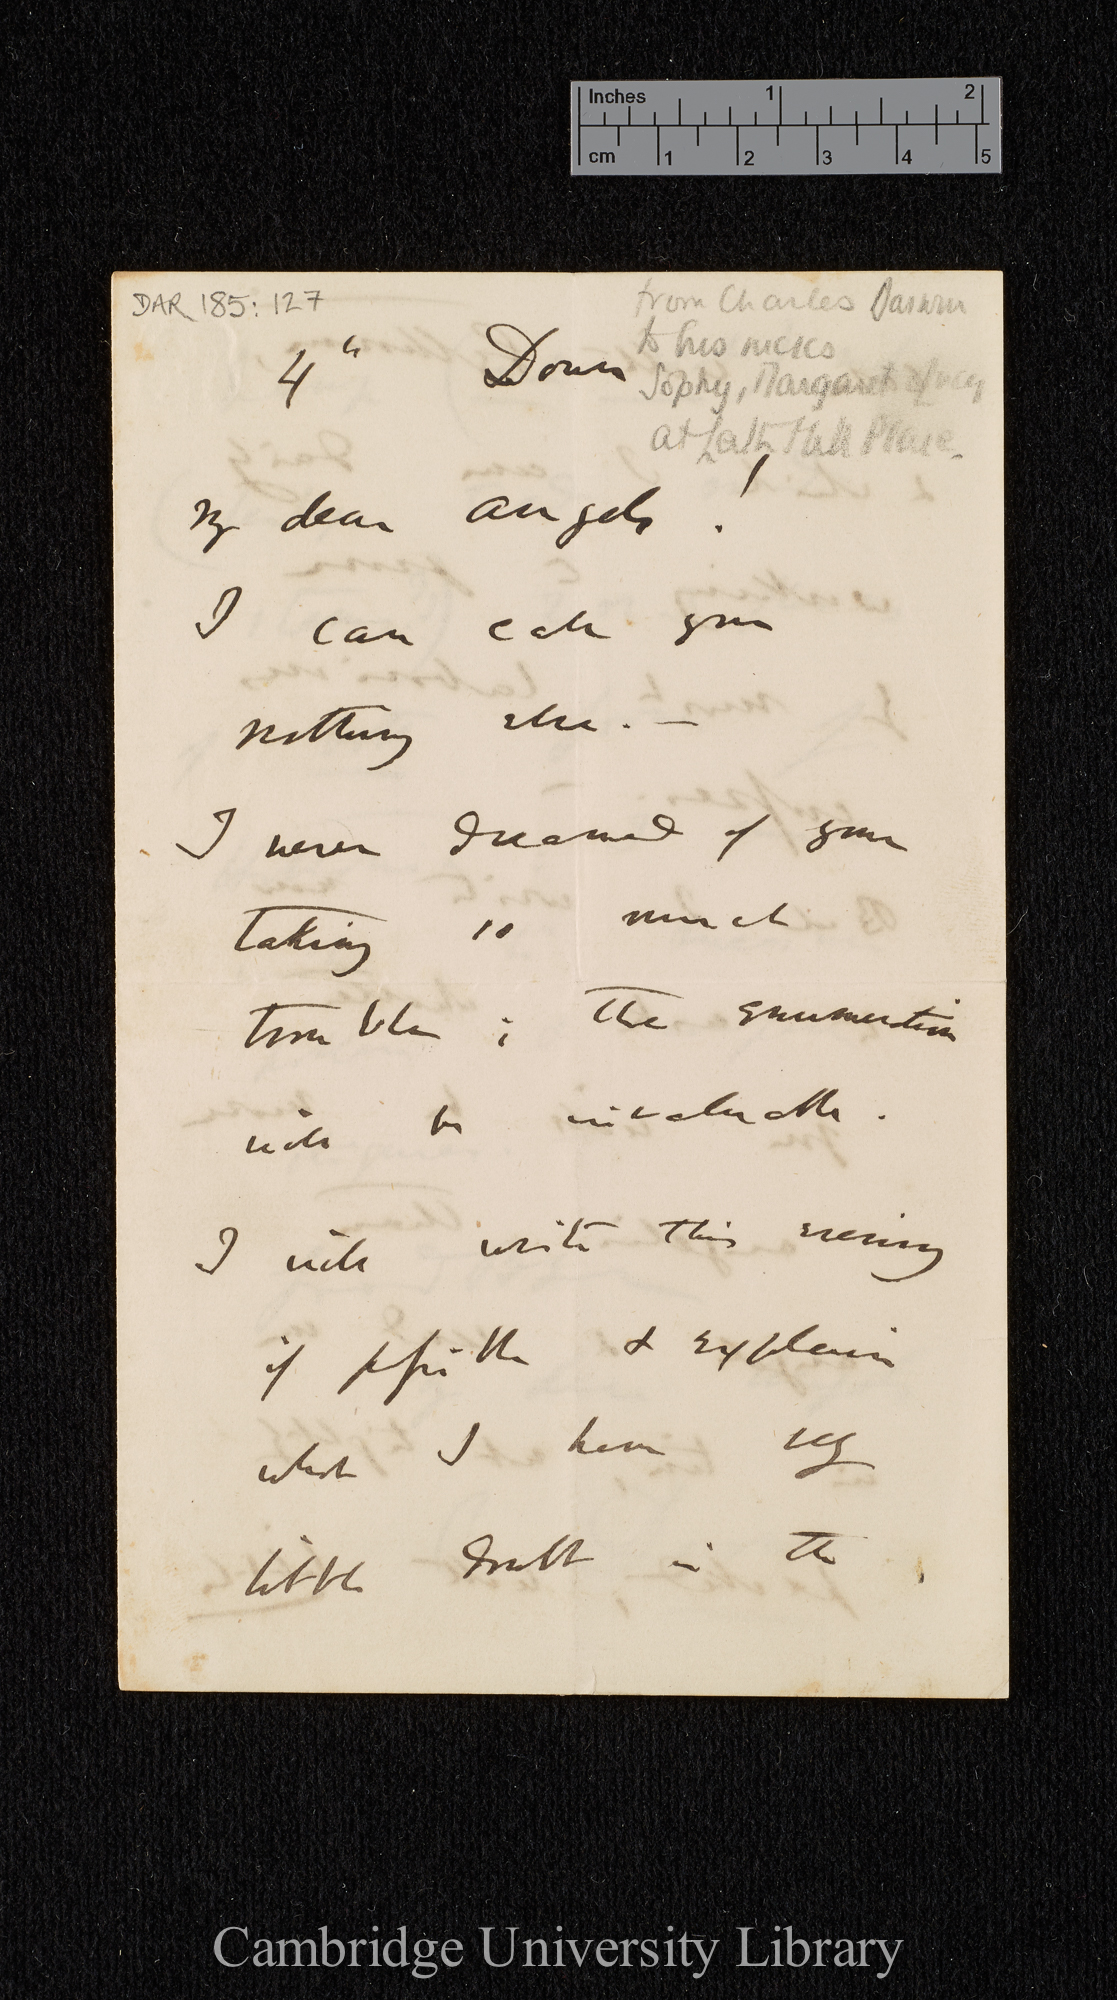 Inches 1 2
cm 1 2 3 4 5
DAR 185: 127
from Charles Darwin
to his nieces
Sophy, Margaret & Lucy
at Leith Hill Place.
4th Down
My dear angels!
I can call you
nothing else.—
I never dreamed of your
taking so much
trouble; the enumeration
will be invaluable.
I will write this evening
if possible & explain
what I have very
little doubt is the
Cambridge University Library